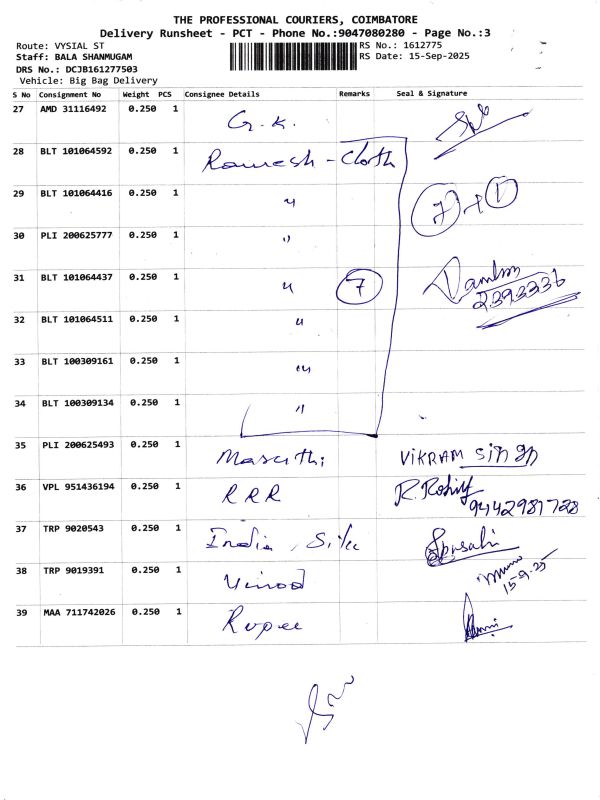 THE PROFESSIONAL COURIERS, COIMBATORE
Delivery Runsheet - PCT - Phone No.:9047080280 - Page No.:3
Route: VYSIAL ST RS No.: 1612775
Staff: BALA SHANMUGAM RS Date: 15-Sep-2025
DRS No.: DCJB161277503
Vehicle: Big Bag Delivery
S No Consignment No Weight PCS Consignee Details Remarks Seal & Signature
27 AMD 31116492 0.250 1 G. K.
28 BLT 101064592 0.250 1 Ramesh - Cloth
29 BLT 101064416 0.250 1 " 7 + 1
30 PLI 200625777 0.250 1 "
31 BLT 101064437 0.250 1 " 7
2393336
32 BLT 101064511 0.250 1 "
33 BLT 100309161 0.250 1 "
34 BLT 100309134 0.250 1 "
35 PLI 200625493 0.250 1 Maruthi VIKRAM Singh
36 VPL 951436194 0.250 1 R R R R. Rohit
9442981728
37 TRP 9020543 0.250 1 India, Silk
38 TRP 9019391 0.250 1 Vinod
15-9-25
39 MAA 711742026 0.250 1 Rupee